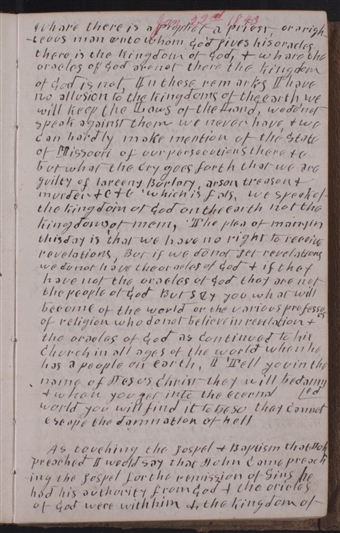 Jan 22nd 1843
Whare there is a prophet a priest or a righ
teous man unto whom God gives his oracles
there is the kingdom of God, & whare the
oracles of God are not there the kingdom
of God is not, In these remarks I have
no allusion to the kingdoms of the earth we
will keep the Laws of the Land, we do not
speak against them we never have & we
can hardly make mention of the State
of Missouri of our persecutions there &c
but what the cry goes forth that we are
guilty of larceny Burlary, arson treason &
murder &c &c which is fals, we speak of
the kingdom of God on the earth not the
kingdoms of men, The plea of many in
this day is that we have no right to receive
revelations, But if we do not get revelations
we do not have the oracles of God & if they
have not the oracles of God that are not
the people of God But say you what will
become of the world or the various professors
of religion who do not believe in revelation &
the oracles of God as continued to his
Church in all ages of the world when he
has a people on earth, I Tell you in the
name of Jesus Christ they will be damn
ed
& when you get into the eternal
world you will find it to be so they cannot
escape the damnation of hell
As touching the gospel & Baptism that John
preached I would say that John came preach
ing the gospel for the remission of Sins he
had his authority from God & the oricles
of God were with him & the kingdom of